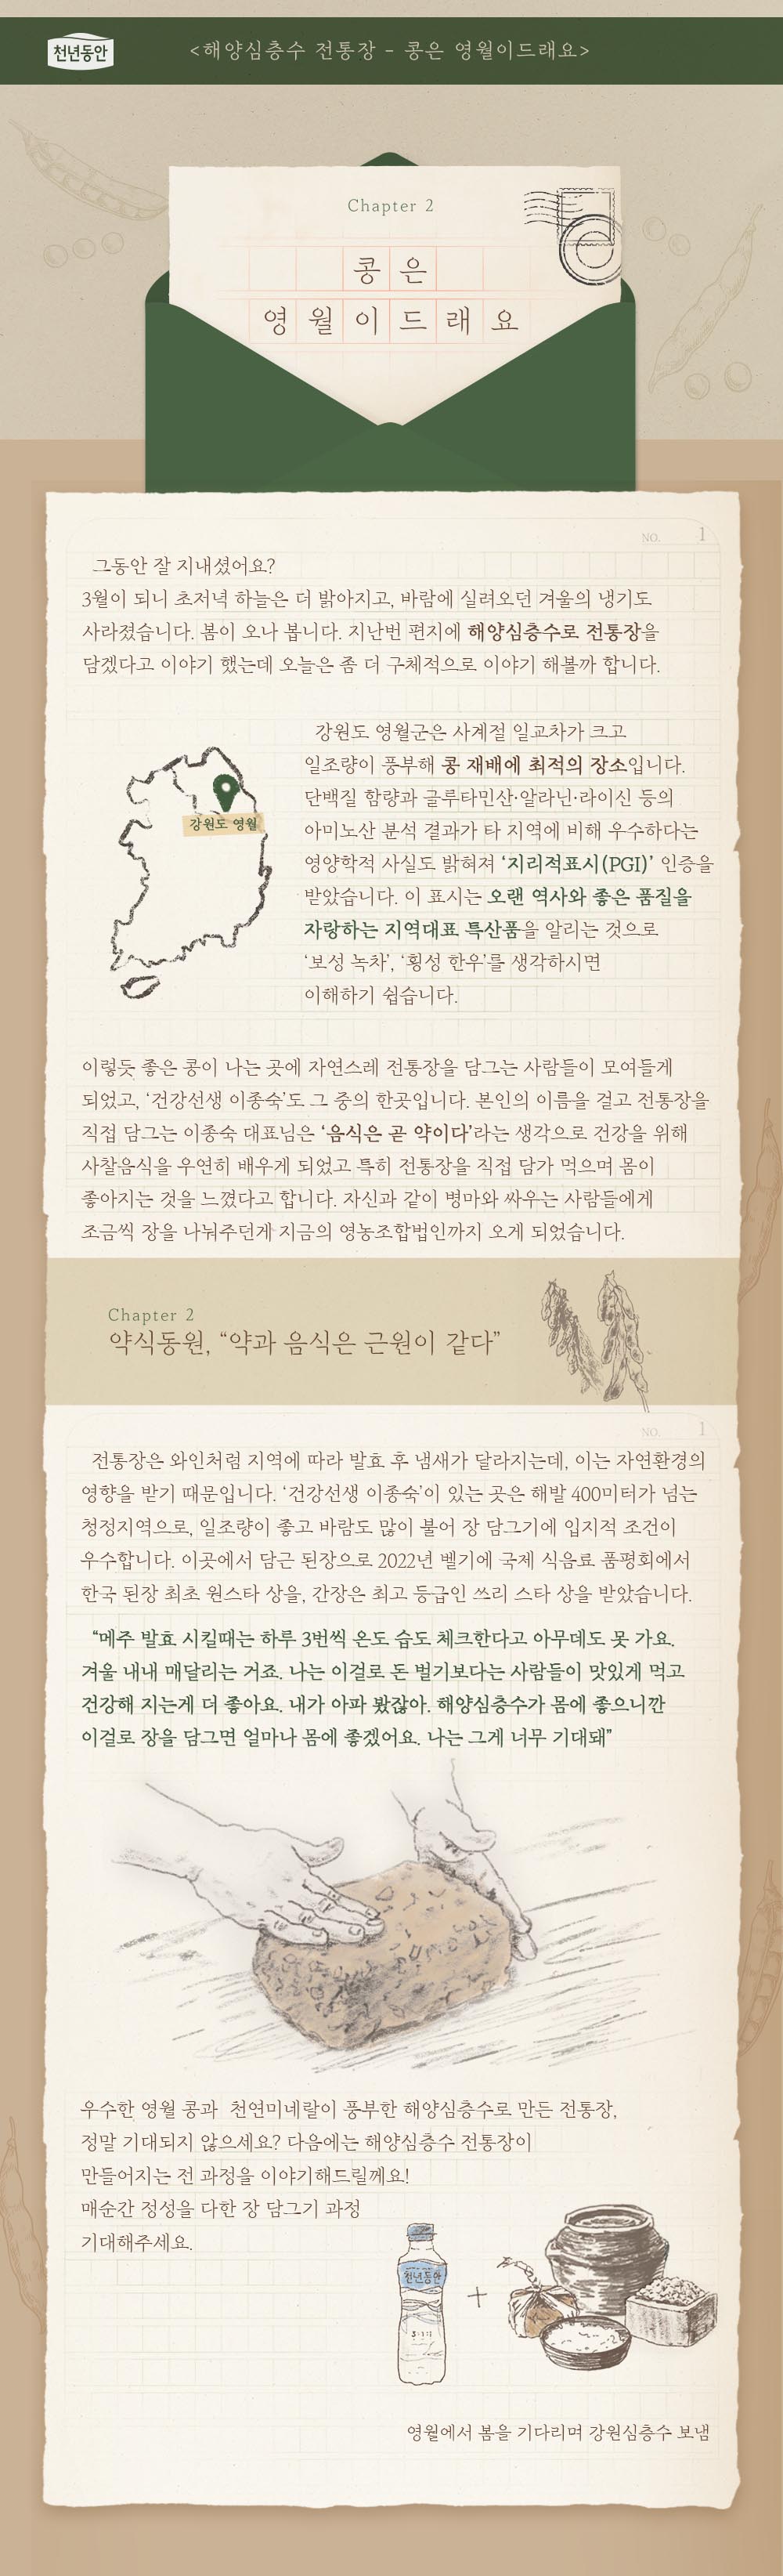 천년동안
<해양심층수 전통장 - 콩은 영월이드래요>
Chapter 2
콩은
영월이드래요
NO. 1
그동안 잘 지내셨어요?
3월이 되니 초저녁 하늘은 더 밝아지고, 바람에 실려오던 겨울의 냉기도
사라졌습니다. 봄이 오나 봅니다. 지난번 편지에 해양심층수로 전통장을
담겠다고 이야기 했는데 오늘은 좀 더 구체적으로 이야기 해볼까 합니다.
강원도 영월
강원도 영월군은 사계절 일교차가 크고
일조량이 풍부해 콩 재배에 최적의 장소입니다.
단백질 함량과 글루타민산·알라닌·라이신 등의
아미노산 분석 결과가 타 지역에 비해 우수하다는
영양학적 사실도 밝혀져 ‘지리적표시(PGI)’ 인증을
받았습니다. 이 표시는 오랜 역사와 좋은 품질을
자랑하는 지역대표 특산품을 알리는 것으로
‘보성 녹차’, ‘횡성 한우’를 생각하시면
이해하기 쉽습니다.
이렇듯 좋은 콩이 나는 곳에 자연스레 전통장을 담그는 사람들이 모여들게
되었고, ‘건강선생 이종숙’도 그 중의 한곳입니다. 본인의 이름을 걸고 전통장을
직접 담그는 이종숙 대표님은 ‘음식은 곧 약이다’라는 생각으로 건강을 위해
사찰음식을 우연히 배우게 되었고 특히 전통장을 직접 담가 먹으며 몸이
좋아지는 것을 느꼈다고 합니다. 자신과 같이 병마와 싸우는 사람들에게
조금씩 장을 나눠주던게 지금의 영농조합법인까지 오게 되었습니다.
Chapter 2
약식동원, “약과 음식은 근원이 같다”
NO. 1
전통장은 와인처럼 지역에 따라 발효 후 냄새가 달라지는데, 이는 자연환경의
영향을 받기 때문입니다. ‘건강선생 이종숙’이 있는 곳은 해발 400미터가 넘는
청정지역으로, 일조량이 좋고 바람도 많이 불어 장 담그기에 입지적 조건이
우수합니다. 이곳에서 담근 된장으로 2022년 벨기에 국제 식음료 품평회에서
한국 된장 최초 원스타 상을, 간장은 최고 등급인 쓰리 스타 상을 받았습니다.
“메주 발효 시킬때는 하루 3번씩 온도 습도 체크한다고 아무데도 못 가요.
겨울 내내 매달리는 거죠. 나는 이걸로 돈 벌기보다는 사람들이 맛있게 먹고
건강해 지는게 더 좋아요. 내가 아파 봤잖아. 해양심층수가 몸에 좋으니깐
이걸로 장을 담그면 얼마나 몸에 좋겠어요. 나는 그게 너무 기대돼”
우수한 영월 콩과 천연미네랄이 풍부한 해양심층수로 만든 전통장,
정말 기대되지 않으세요? 다음에는 해양심층수 전통장이
만들어지는 전 과정을 이야기해드릴께요!
매순간 정성을 다한 장 담그기 과정
기대해주세요.
천년동안
영월에서 봄을 기다리며 강원심층수 보냄